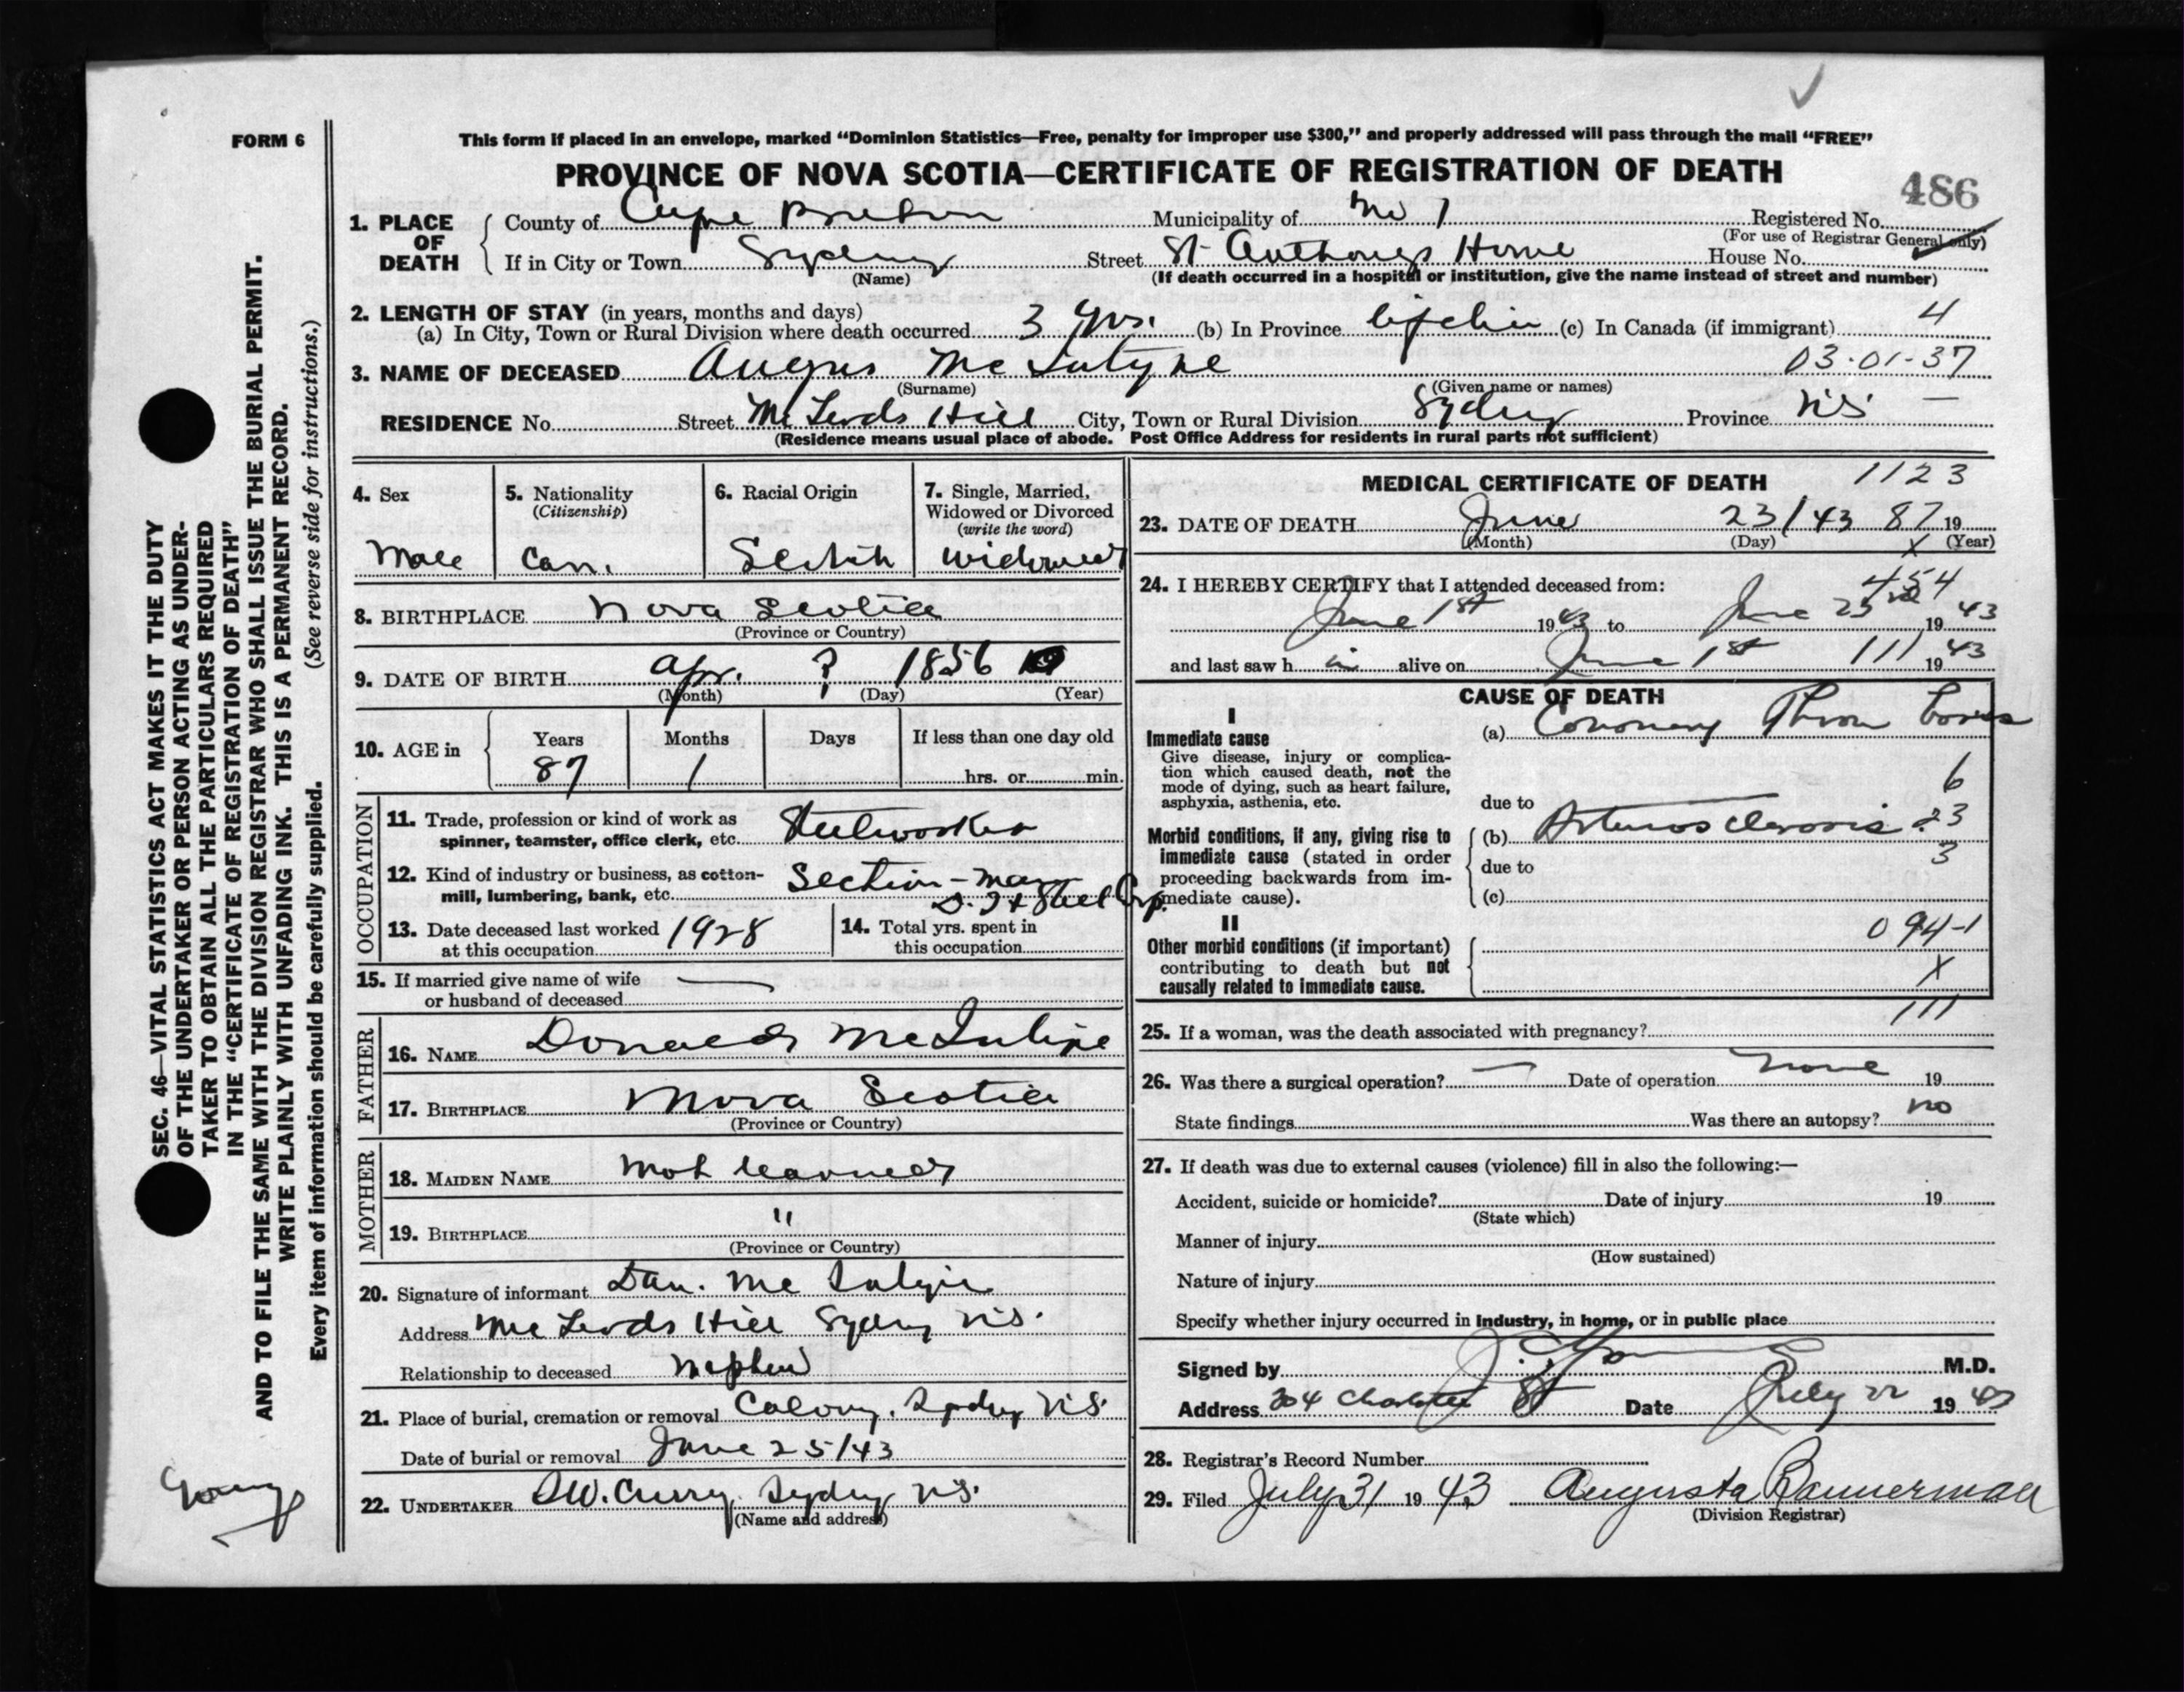 FORM 6
This form if placed in an envelope, marked "Dominion Statistics—Free, penalty for improper use $300," and properly addressed will pass through the mail "FREE"
PROVINCE OF NOVA SCOTIA—CERTIFICATE OF REGISTRATION OF DEATH
486
1. PLACE OF DEATH County of Cape Breton Municipality of No 1 Registered No.
(For use of Registrar General only)
If in City or Town Sydney Street St Anthonys Home House No.
(Name) (If death occurred in a hospital or institution, give the name instead of street and number)
2. LENGTH OF STAY (in years, months and days)
(a) In City, Town or Rural Division where death occurred 3 yrs. (b) In Province lifetime (c) In Canada (if immigrant) 4
3. NAME OF DECEASED Angus McIntyre 03-01-37
(Surname) (Given name or names)
RESIDENCE No. Street McLeods Hill City, Town or Rural Division Sydney Province N.S. —
(Residence means usual place of abode. Post Office Address for residents in rural parts not sufficient)
4. Sex Male
5. Nationality (Citizenship) Can.
6. Racial Origin Scotch
7. Single, Married, Widowed or Divorced (write the word) Widowed
8. BIRTHPLACE Nova Scotia
(Province or Country)
9. DATE OF BIRTH Apr. ? 1856
(Month) (Day) (Year)
10. AGE in Years Months Days If less than one day old
87 1 hrs. or min.
OCCUPATION
11. Trade, profession or kind of work as
spinner, teamster, office clerk, etc. Steelworker
12. Kind of industry or business, as cotton-
mill, lumbering, bank, etc. Section-man
D. I & Steel Corp.
13. Date deceased last worked at this occupation 1928
14. Total yrs. spent in this occupation
15. If married give name of wife —
or husband of deceased
FATHER
16. NAME Donald McIntyre
17. BIRTHPLACE Nova Scotia
(Province or Country)
MOTHER
18. MAIDEN NAME Not learned
19. BIRTHPLACE "
(Province or Country)
20. Signature of informant Dan. McIntyre
Address McLeods Hill Sydney N.S.
Relationship to deceased Nephew
21. Place of burial, cremation or removal Calvary, Sydney N.S.
Date of burial or removal June 25/43
22. UNDERTAKER Curry, Sydney N.S.
(Name and address)
MEDICAL CERTIFICATE OF DEATH 1123
23. DATE OF DEATH June 23/43 87 19
(Month) (Day) X (Year)
24. I HEREBY CERTIFY that I attended deceased from: 454
June 1st 1943 to June 23rd 1943
and last saw h im alive on June 1st 111 1943
CAUSE OF DEATH
I
Immediate cause
Give disease, injury or complica-
tion which caused death, not the
mode of dying, such as heart failure,
asphyxia, asthenia, etc.
(a) Coronary Thrombosis
6
due to
Morbid conditions, if any, giving rise to
immediate cause (stated in order
proceeding backwards from im-
mediate cause).
(b) Arteriosclerosis 23
due to 3
(c)
II
Other morbid conditions (if important)
contributing to death but not
causally related to immediate cause.
094-1
X
111
25. If a woman, was the death associated with pregnancy?
26. Was there a surgical operation? — Date of operation None 19
State findings Was there an autopsy? no
27. If death was due to external causes (violence) fill in also the following:—
Accident, suicide or homicide? Date of injury 19
(State which)
Manner of injury
(How sustained)
Nature of injury
Specify whether injury occurred in industry, in home, or in public place
Signed by M.D.
Address 204 Charlotte St Date July 22 1943
28. Registrar's Record Number
29. Filed July 31 1943 Augusta Bannerman
(Division Registrar)
SEC. 46—VITAL STATISTICS ACT MAKES IT THE DUTY
OF THE UNDERTAKER OR PERSON ACTING AS UNDER-
TAKER TO OBTAIN ALL THE PARTICULARS REQUIRED
IN THE "CERTIFICATE OF REGISTRATION OF DEATH"
AND TO FILE THE SAME WITH THE DIVISION REGISTRAR WHO SHALL ISSUE THE BURIAL PERMIT.
WRITE PLAINLY WITH UNFADING INK. THIS IS A PERMANENT RECORD.
Every item of information should be carefully supplied. (See reverse side for instructions.)